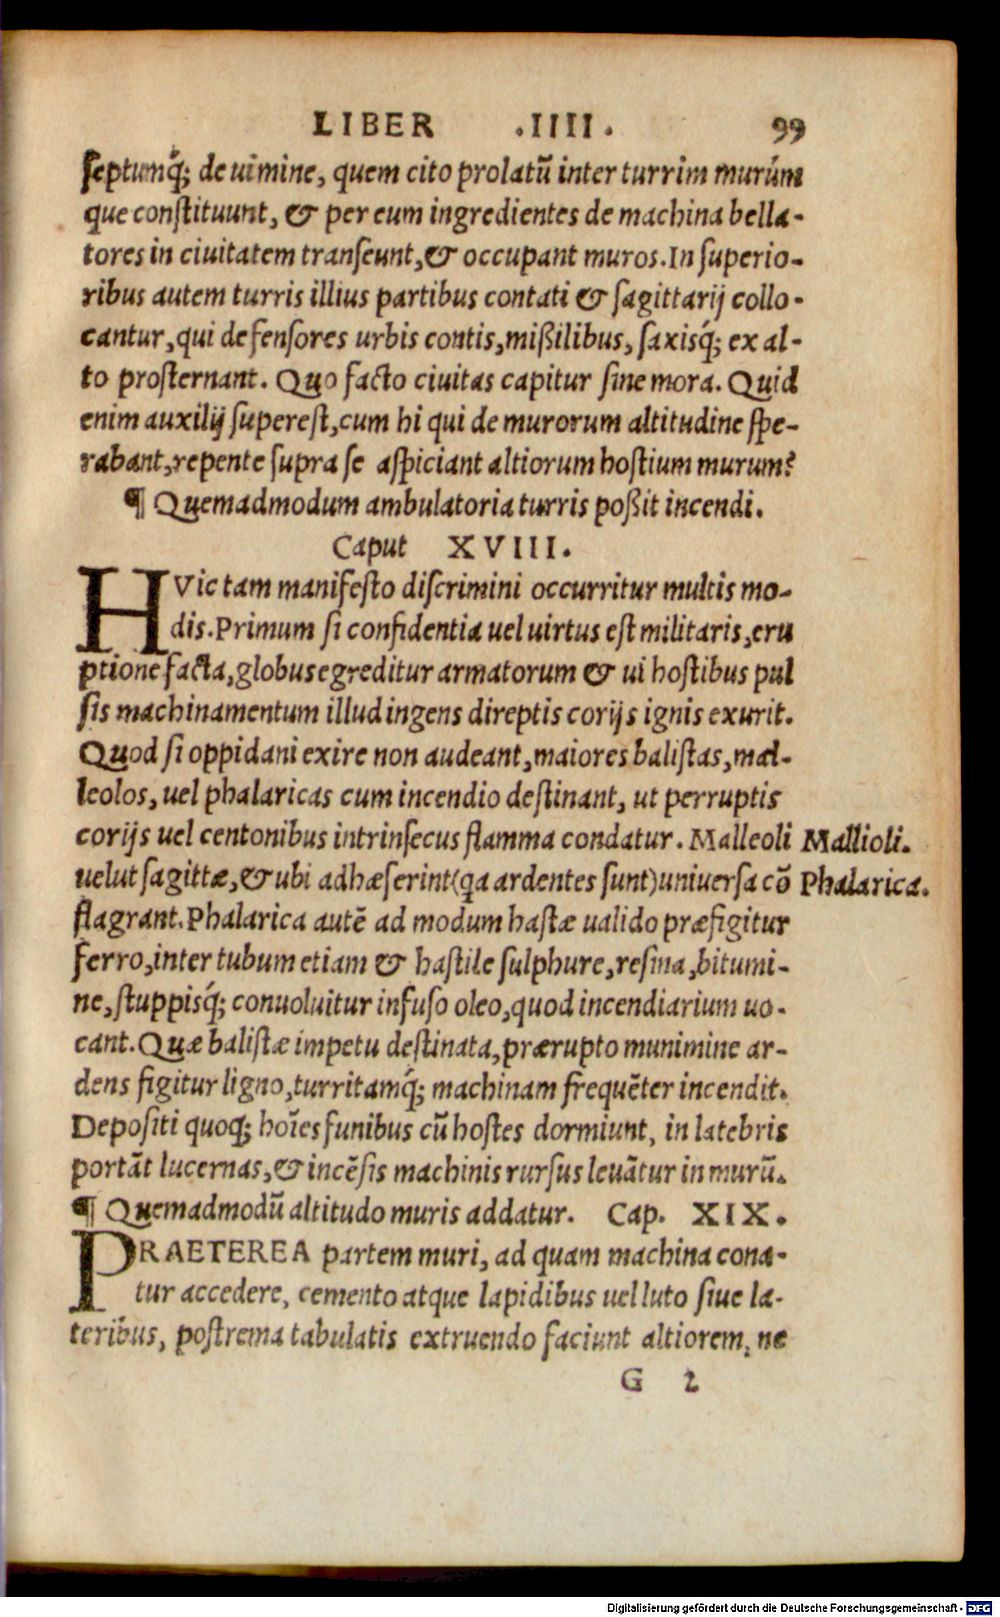 LIBER .IIII. 99
ſeptumq́; de uimine, quem cito prolatū inter turrim murúm
que conſtituunt, & per eum ingredientes de machina bella-
tores in ciuitatem tranſeunt, & occupant muros. In ſuperio-
ribus autem turris illius partibus contati & ſagittarij collo-
cantur, qui defenſores urbis contis, mißilibus, ſaxisq́; ex al-
to proſternant. Quo facto ciuitas capitur ſine mora. Quid
enim auxilij ſupereſt, cum hi qui de murorum altitudine ſpe-
rabant, repente ſupra ſe aſpiciant altiorum hoſtium murum?
¶ Quemadmodum ambulatoria turris poßit incendi.
Caput XVIII.
HVic tam manifeſto diſcrimini occurritur multis mo-
dis. Primum ſi confidentia uel uirtus eſt militaris, eru
ptione facta, globus egreditur armatorum & ui hoſtibus pul
ſis machinamentum illud ingens direptis corijs ignis exurit.
Quod ſi oppidani exire non audeant, maiores baliſtas, mal-
leolos, uel phalaricas cum incendio deſtinant, ut perruptis
corijs uel centonibus intrinſecus flamma condatur. Malleoli Mallioli.
uelut ſagittæ, & ubi adhæſerint (qa ardentes ſunt) uniuerſa cō Phalarica.
flagrant. Phalarica autē ad modum haſtæ ualido præfigitur
ferro, inter tubum etiam & haſtile ſulphure, reſina, bitumi-
ne, ſtuppisq́; conuoluitur infuſo oleo, quod incendiarium uo-
cant. Quæ baliſtæ impetu deſtinata, prærupto munimine ar-
dens figitur ligno, turritamq́; machinam frequēter incendit.
Depoſiti quoq; hoīes funibus cū hoſtes dormiunt, in latebris
portāt lucernas, & incēſis machinis rurſus leuātur in murū.
¶ Quemadmodū altitudo muris addatur. Cap. XIX.
PRAETEREA partem muri, ad quam machina cona-
tur accedere, cemento atque lapidibus uel luto ſiue la-
teribus, poſtrema tabulatis extruendo faciunt altiorem, ne
G 2
Digitalisierung gefördert durch die Deutsche Forschungsgemeinschaft - DFG